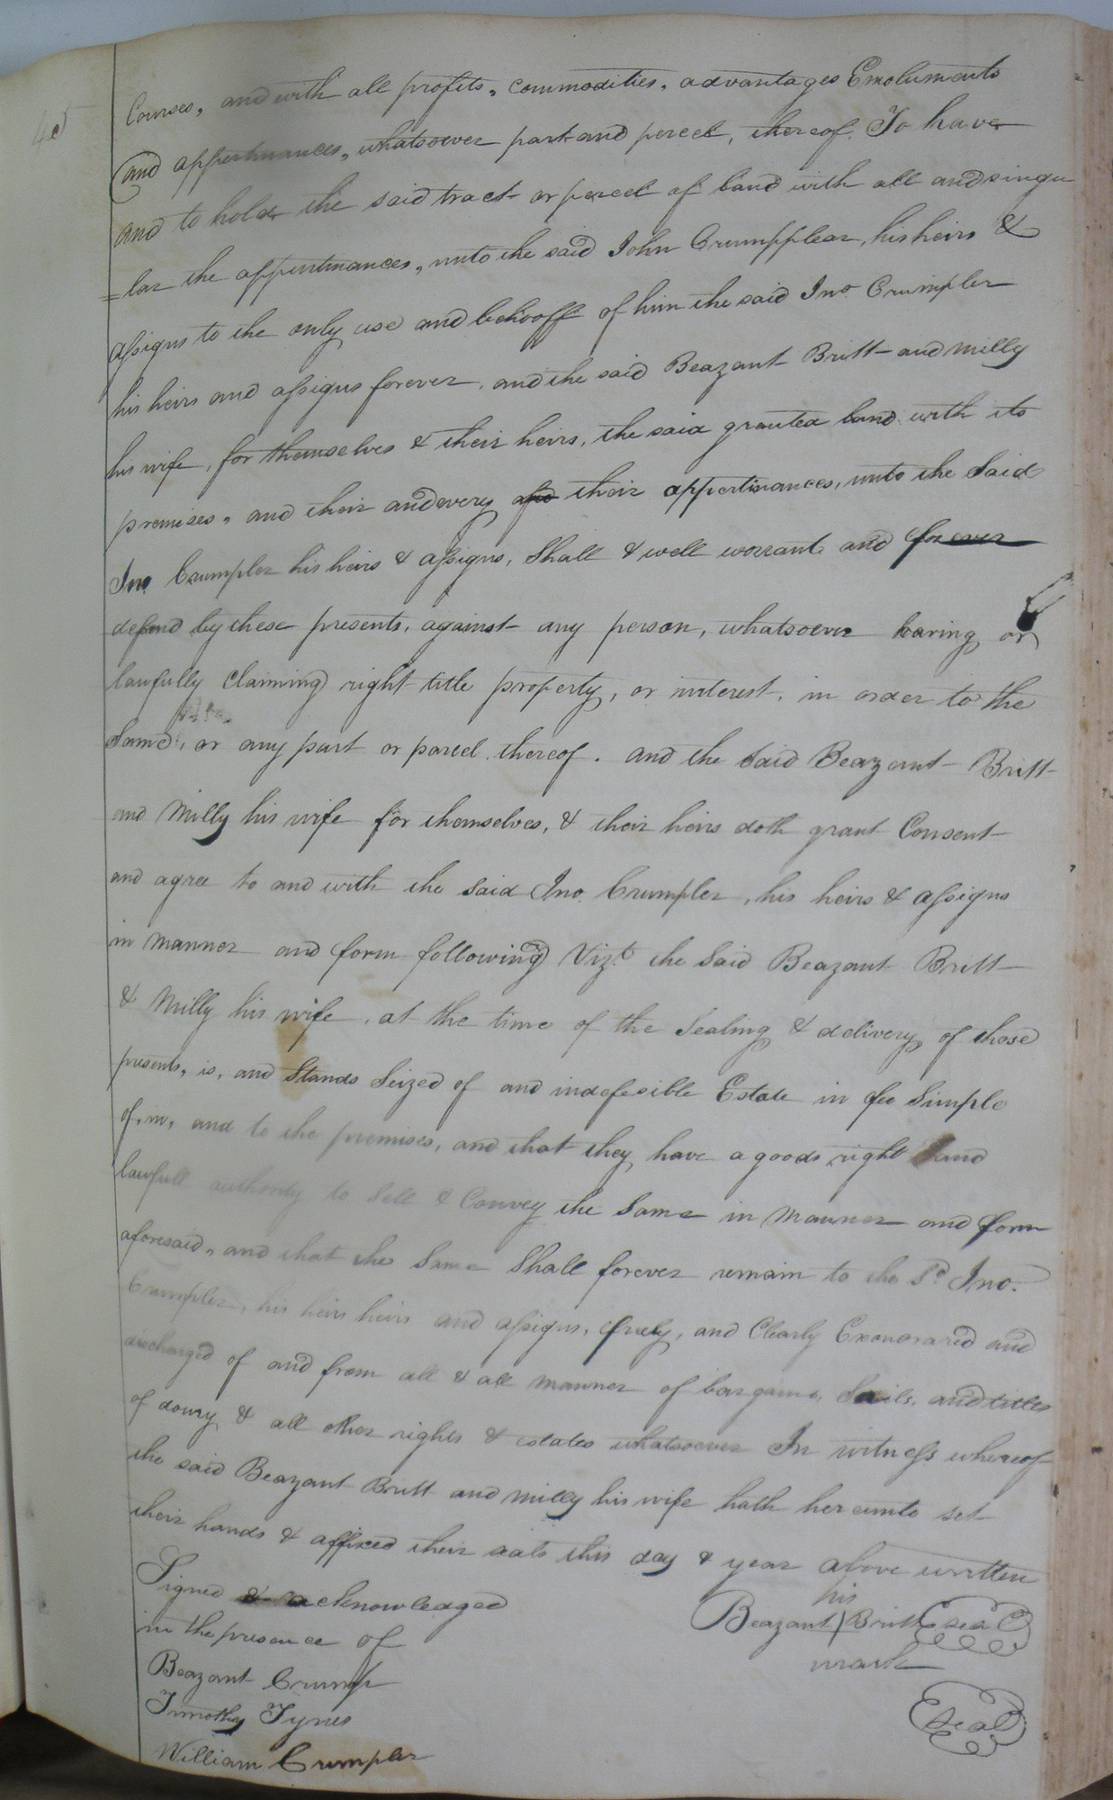 Courses, and with all profits, commodities, advantages Emoluments
and appertinances, whatsoever part and percel, thereof. To have
and to hold the said tract or percel of land with all and singu
=lar the appertinances, unto the said John Crumppler, his heirs &
assigns to the only use and behooff of him the said Jno Crumpler
his heirs and assigns forever, and the said Beazant Britt and Milly
his wife, for themselves & their heirs, the said granted land with its
premises, and their and every their appertinances, unto the Said
Jno Crumpler his heirs & assigns, Shall & well warrant and for ever
defend by these presents, against any person, whatsoever having or
lawfully Claiming right title property, or interest, in order to the
Same, or any part or parcel thereof. and the Said Beazant Britt
and Milly his wife for themselves, & their heirs doth grant Consent
and agree to and with the said Jno. Crumpler, his heirs & assigns
in manner and form following Vizt the Said Beazant Britt
& Milly his wife, at the time of the Sealing & delivery of these
presents, is, and Stands Seized of and indefesible Estate in fee Simple
of, in, and to the premises, and that they have a good right and
lawfull authority to Sell & Convey the Same in Manner and form
aforesaid, and that the Same Shall forever remain to the Sd. Jno.
Crumpler, his heirs heirs and assigns, freely, and Clearly Exonorared and
discharged of and from all & all manner of bargains, Sails, and titles
of dowry & all other rights & estates whatsoever In witness whereof
the said Beazant Britt and Milly his wife hath hereunto set
their hands & affixed their seals this day & year above written
Signed & acknowledged
in the presence of
Beazant Crump
Timothy Tynes
William Crumpler
his
Beazant Britt Seal
mark
Seal